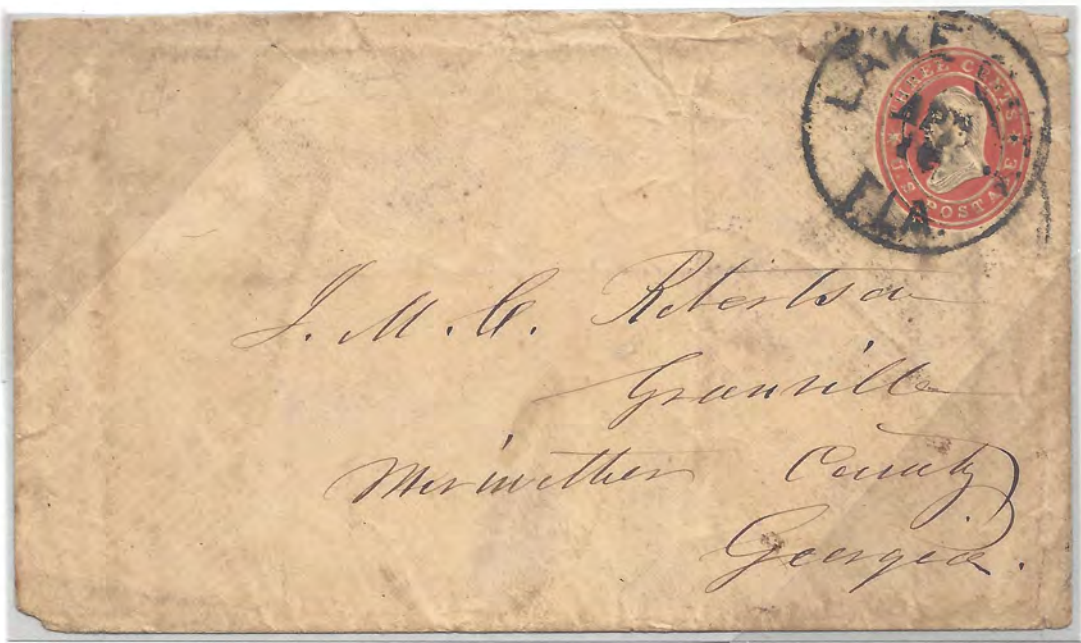 LAKE CITY
APR
FLA.
THREE CENTS
U.S. POSTAGE
J. M. C. Robertson
Granville
Meriwether County
Georgia.